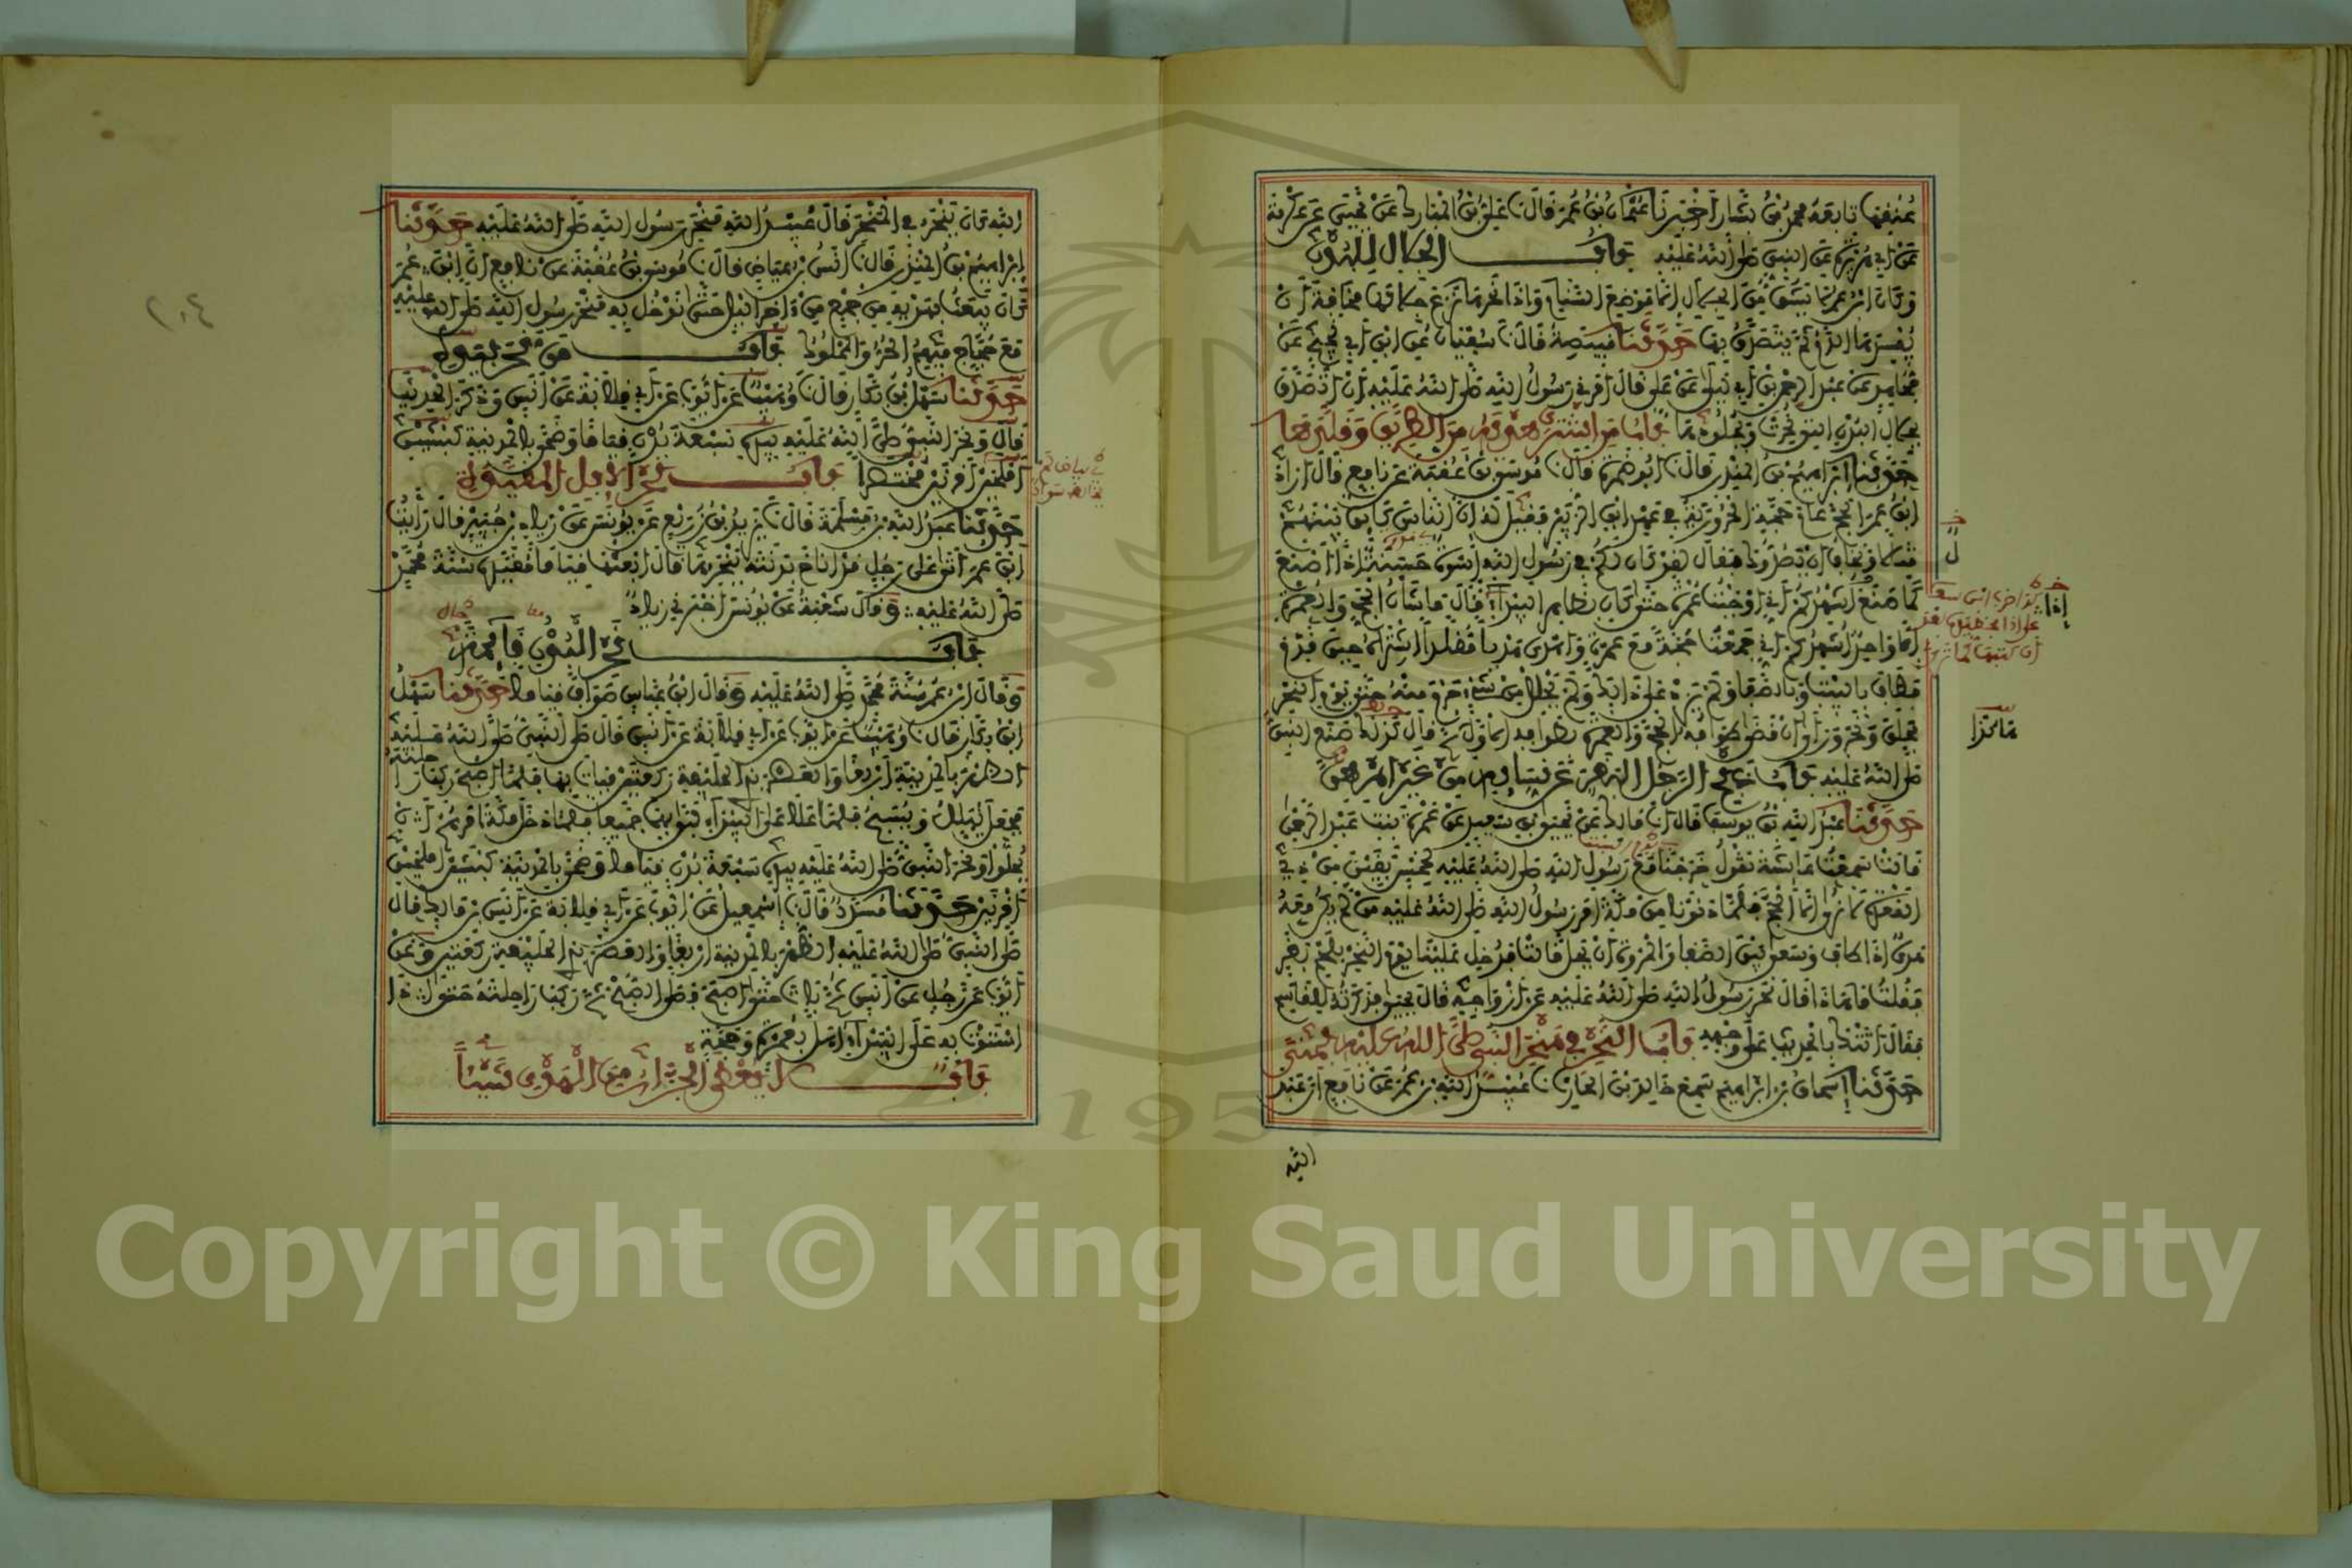 عنفها تابعه محمد بن بشار اخبرنا عثمان بن عمر قال نا علي بن المبارك عن يحيى عن عكرمة
عن ابي هريرة عن النبي صلى الله عليه باب الجلال للبدن
وكان ابن عمر لا يشق من الجلال الا موضع السنام واذا نحرها نزع جلالها مخافة ان
يفسدها الدم ثم يتصدق بها حدثنا قبيصة قال نا سفيان عن ابن ابي نجيح عن
مجاهد عن عبد الرحمن بن ابي ليلى عن علي قال امرني رسول الله صلى الله عليه ان اتصدق
بجلال البدن التي نحرت وبجلودها باب من اشترى هديه من الطريق وقلدها
حدثنا ابراهيم بن المنذر قال نا ابو ضمرة قال نا موسى بن عقبة عن نافع قال اراد
ابن عمر الحج عام حجة الحرورية في عهد ابن الزبير فقيل له ان الناس كائن بينهم
قتال ونخاف ان يصدوك فقال لقد كان لكم في رسول الله اسوة حسنة اذا اصنع
كما صنع اشهدكم اني اوجبت عمرة حتى كان بظاهر البيداء قال ما شان الحج والعمرة
الا واحد اشهدكم اني جمعت حجة مع عمرة واهدى هديا مقلدا اشتراه حين قدم
فطاف بالبيت وبالصفا ولم يزد على ذلك ولم يحلل من شيء حرم منه حتى يوم النحر
فحلق ونحر وراى ان قد قضى طوافه للحج والعمرة بطوافه الاول ثم قال كذلك صنع النبي
صلى الله عليه باب ذبح الرجل البقر عن نسائه من غير امرهن
حدثنا عبد الله بن يوسف قال انا مالك عن يحيى بن سعيد عن عمرة بنت عبد الرحمن
قالت سمعت عائشة تقول خرجنا مع رسول الله صلى الله عليه لخمس بقين من ذي
القعدة لا نرى الا الحج فلما دنونا من مكة امر رسول الله صلى الله عليه من لم يكن معه
هدي اذا طاف وسعى بين الصفا والمروة ان يحل قالت فدخل علينا يوم النحر بلحم بقر
فقلت ما هذا قال نحر رسول الله صلى الله عليه عن ازواجه قال يحيى فذكرته للقاسم
فقال اتتك بالحديث على وجهه باب النحر في منحر النبي صلى الله عليه بمنى
حدثنا اسحاق بن ابراهيم سمع خالد بن الحارث نا عبيد الله بن عمر عن نافع ان عبد
الله
اذا
ما هذا
الله كان ينحر في المنحر قال عبيد الله منحر رسول الله صلى الله عليه حدثنا
ابراهيم بن المنذر قال نا انس بن عياض قال نا موسى بن عقبة عن نافع ان ابن عمر
كان يبعث بهديه من جمع من اخر الليل حتى يدخل به منحر رسول الله صلى الله عليه
مع حجاج فيهم الحر والمملوك باب من نحر بيده
حدثنا سهل بن بكار قال نا وهيب عن ايوب عن ابي قلابة عن انس وذكر الحديث
قال ونحر النبي صلى الله عليه بيده سبعة بدن قياما وضحى بالمدينة كبشين
املحين اقرنين مختصرا باب نحر الابل المقيدة
حدثنا عبد الله بن مسلمة قال نا يزيد بن زريع عن يونس عن زياد بن جبير قال رايت
ابن عمر اتى على رجل قد اناخ بدنته ينحرها قال ابعثها قياما مقيدة سنة محمد
صلى الله عليه وقال شعبة عن يونس اخبرني زياد
باب نحر البدن قائمة
وقال ابن عمر سنة محمد صلى الله عليه وقال ابن عباس صواف قياما حدثنا سهل
ابن بكار قال نا وهيب عن ايوب عن ابي قلابة عن انس قال صلى النبي صلى الله عليه
الظهر بالمدينة اربعا والعصر بذي الحليفة ركعتين فبات بها فلما اصبح ركب راحلته
فجعل يهلل ويسبح فلما علا على البيداء لبى بهما جميعا فلما دخل مكة امرهم ان
يحلوا ونحر النبي صلى الله عليه بيده سبعة بدن قياما وضحى بالمدينة كبشين املحين
اقرنين حدثنا مسدد قال نا اسمعيل عن ايوب عن ابي قلابة عن انس بن مالك قال
صلى النبي صلى الله عليه الظهر بالمدينة اربعا والعصر بذي الحليفة ركعتين وعن
ايوب عن رجل عن انس ثم بات حتى اصبح فصلى الصبح ثم ركب راحلته حتى اذا
استوت به على البيداء اهل بعمرة وحجة
باب لا يعطى الجزار من الهدي شيئا
٢٠٤
Copyright © King Saud University
1957